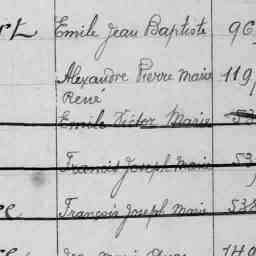 Emile Jean Baptiste 96
Alexandre Pierre Marie 119
René
Emile Victor Marie 53
Francis Joseph Marie 53
François Joseph Marie 538
149